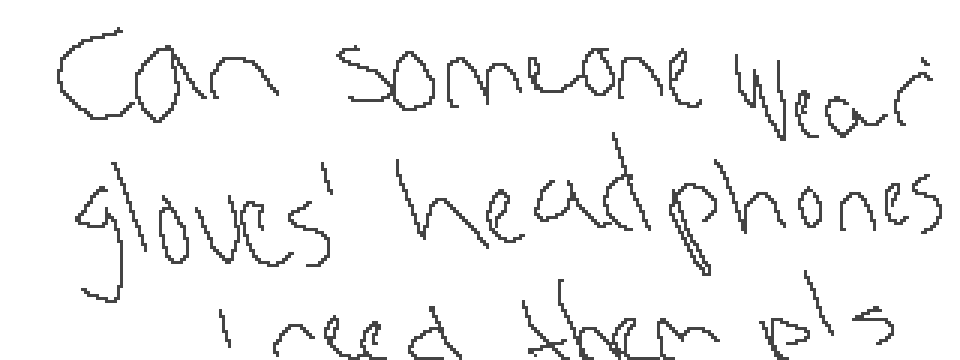 Can someone wear
gloves' headphones
I need them pls